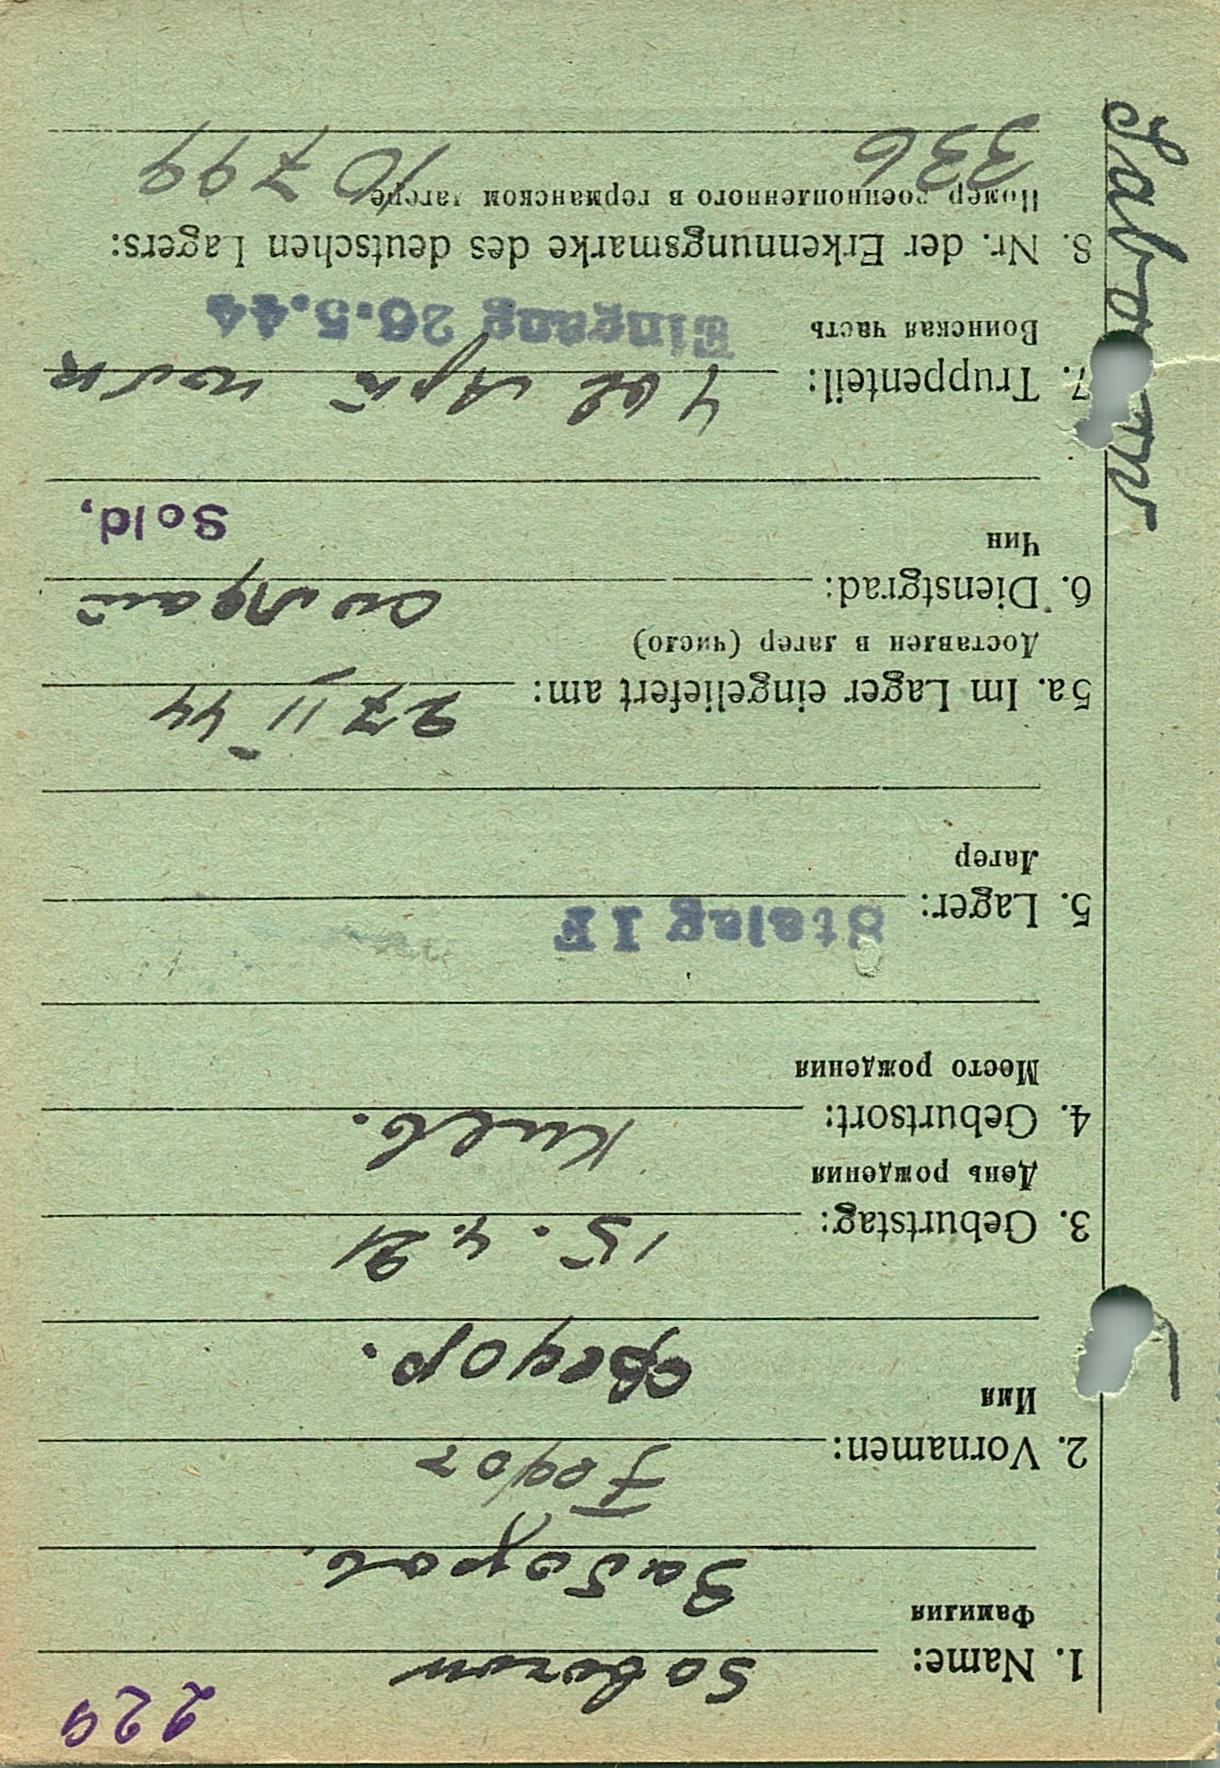 229
1. Name: Saborow
Фамилия
Заборов.
2. Vornamen: Fegor
Имя
Федор.
3. Geburtstag: 15. 4. 21
День рождения
4. Geburtsort: Киев.
Место рождения
5. Lager: Stalag I F
Лагерь
5a. Im Lager eingeliefert am: 27 II 44
Доставлен в лагер (число)
6. Dienstgrad:
Чин
Sold.
7. Truppenteil:
Воинская часть
Eingang 26.5.44
8. Nr. der Erkennungsmarke des deutschen Lagers:
Номер военнопленного в германском лагере
336 10799
Saborow